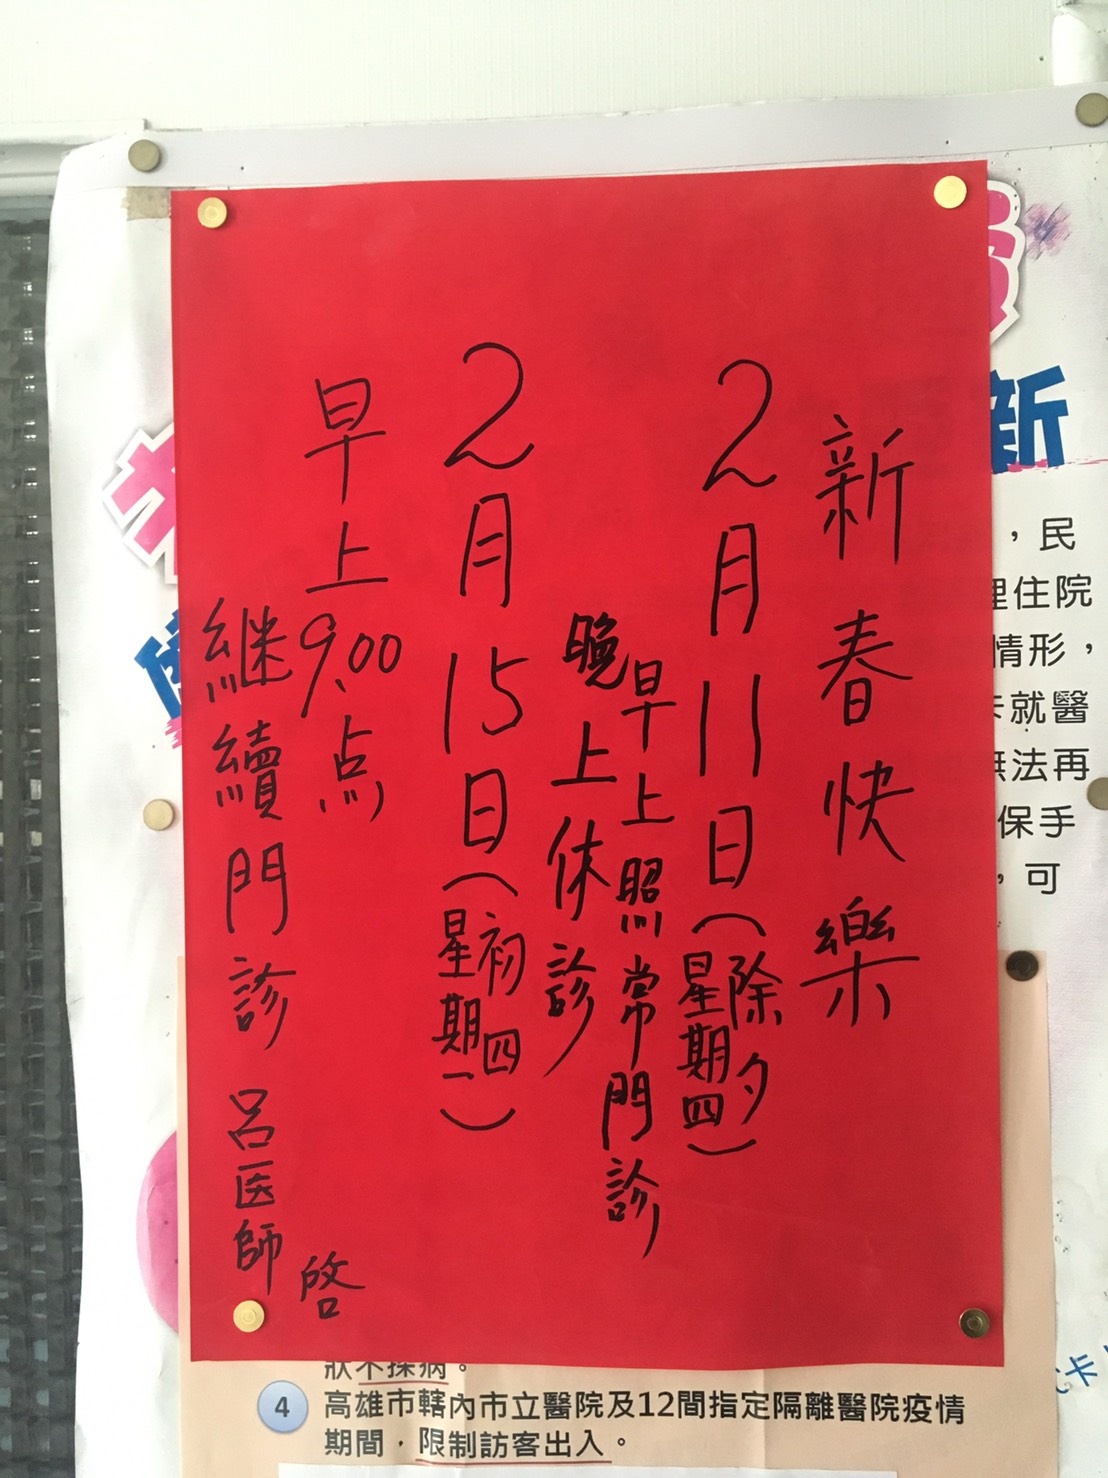 新春快樂
2月11日(除夕
星期四)
早上照常門診
晚上休診
2月15日(初四
星期一)
早上9:00点
継續門診 呂医師
啓
新
，民
住院
情形，
卡就醫
無法再
保手
，可
狀不探病。
4 高雄市轄內市立醫院及12間指定隔離醫院疫情
期間，限制訪客出入。
卡